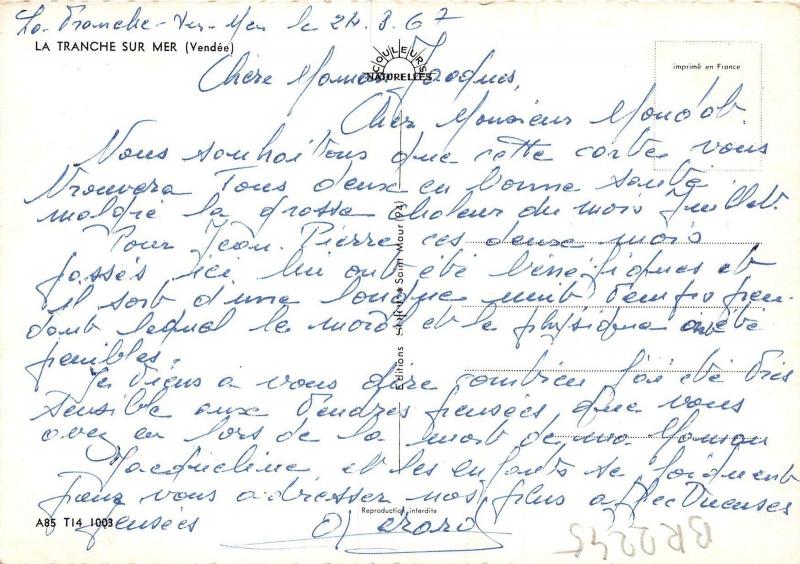 La Tranche-sur-Mer le 24.8.67
LA TRANCHE SUR MER (Vendée)
COULEURS
NATURELLES
imprimé en France
Chère Maman Jacques,
Cher Monsieur
Nous souhaitons que cette carte vous
trouvera tous deux en bonne santé
malgré la grosse chaleur du mois Juillet.
Pour Jean-Pierre ces deux mois
passés ici lui ont été bénéfiques et
il sort d'une longue nuit temps pen-
dant lequel le moral et le physique ont été
penibles.
Je tiens à vous dire combien j'ai été très
sensible aux tendres pensées, que vous
avez en lors de la mort de ma Maman
Jacqueline et les enfants se joignent
pour vous adresser nos plus affectueuses
pensées
Editions Saint Maur (94)
Reproduction interdite
A85 T14 1003
BR0245